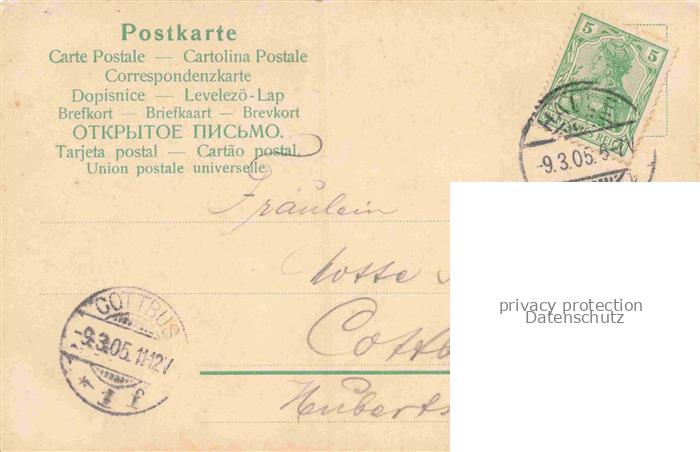 Postkarte
Carte Postale — Cartolina Postale
Correspondenzkarte
Dopisnice — Levelezö-Lap
Brefkort — Briefkaart — Brevkort
ОТКРЫТОЕ ПИСЬМО.
Tarjeta postal — Cartão postal.
Union postale universelle.
5 5
-9.3.05.
Fräulein
Lotte
Cottb
Huberts
COTTBUS
-9.3.05. 11-12V
* 1 *
privacy protection
Datenschutz